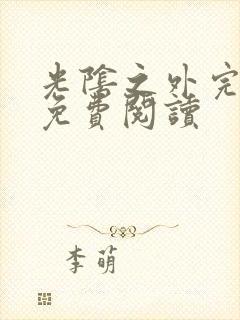 光陰之外完
免費閱讀
李萌